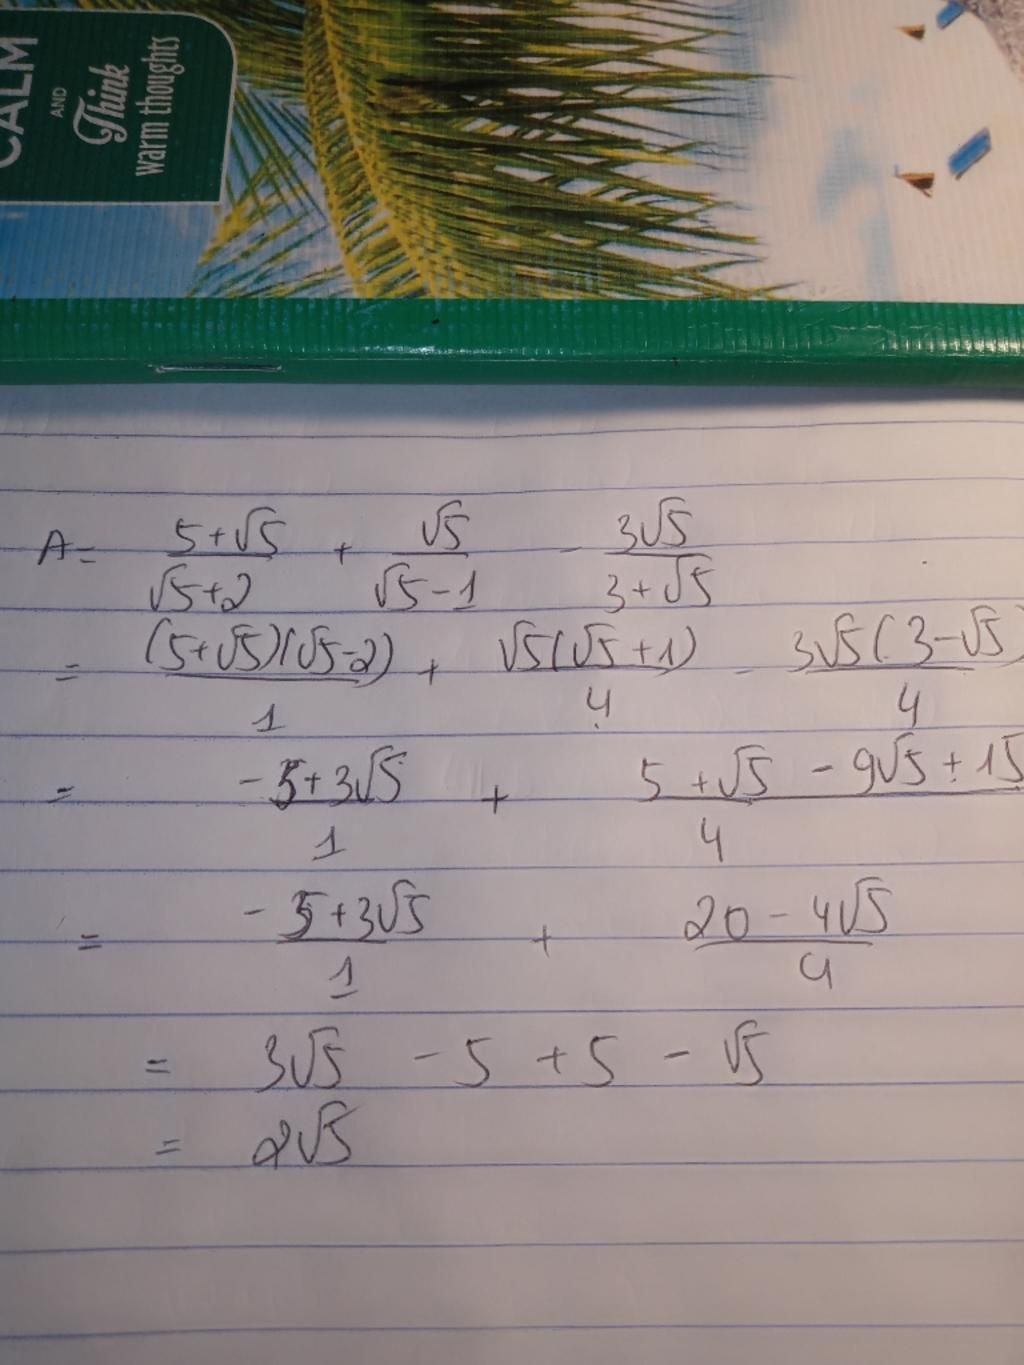 CALM
AND
Think
warm thoughts
A= (5+√5)/(√5+2) + √5/(√5-1) - 3√5/(3+√5)
= (5+√5)(√5-2)/1 + √5(√5+1)/4 - 3√5(3-√5)/4
= (-5+3√5)/1 + (5+√5-9√5+15)/4
= (-5+3√5)/1 + (20-4√5)/4
= 3√5 -5 +5 - √5
= 2√5